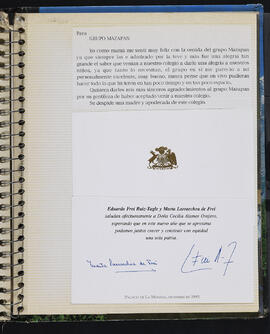 Para
GRUPO MAZAPAN
Yo como mamá me sentí muy feliz con la venida del grupo Mazapan
ya que siempre los e admirado por la teve y más fue una alegría tan
grande el saber que venian a nuestro colegio a darle una alegría a nuestros
niños, ya que tanto lo necesitan, el grupo en si me pareció a mi
personalmente exelente, muy bueno, nunca pense que en vivo pudieran
hacer todo lo que hicieron en tan poco tiempo y en tan poco espacio.
Quisiera darles mis mas sinceros agradecimientos al grupo Mazapan
por su gentileza de haber aceptado venir a nuestro colegio.
Se despide una madre y apoderada de este colegio.
Eduardo Frei Ruiz-Tagle y Marta Larraechea de Frei
saludan afectuosamente a Doña Cecilia Alamos Ovejero,
esperando que en este nuevo año que se aproxima
podamos juntos crecer y construir con equidad
una sola patria.
Marta Larraechea de Frei
PALACIO DE LA MONEDA, DICIEMBRE DE 1995